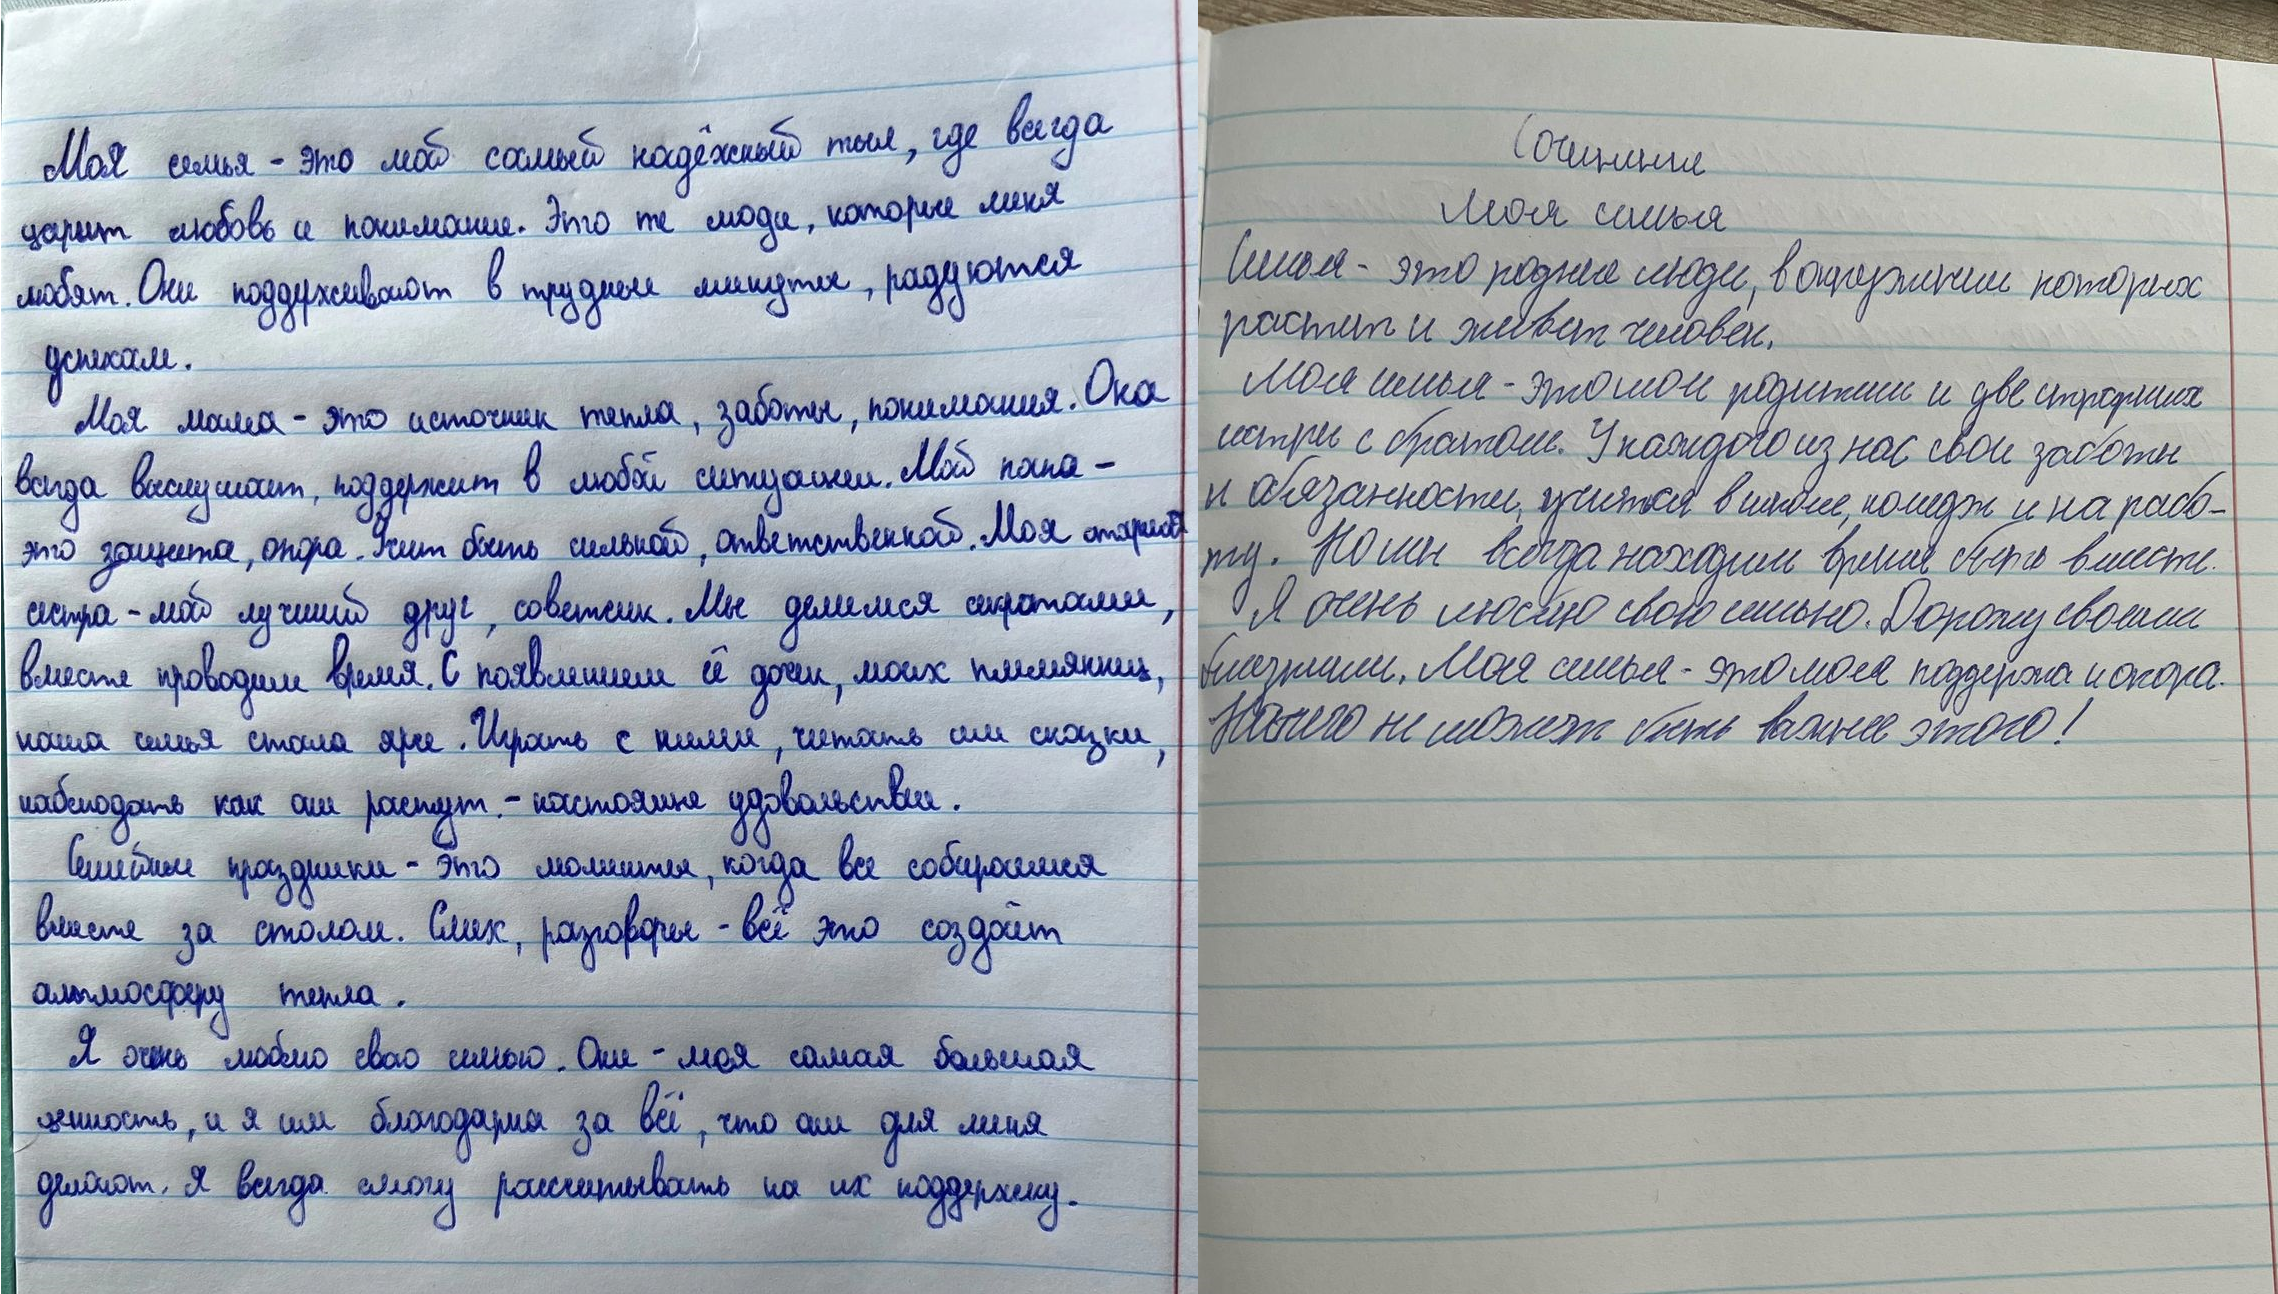 Моя семья - это мой самый надёжный тыл, где всегда
царит любовь и понимание. Это те люди, которые меня
любят. Они поддерживают в трудные минуты, радуются
успехам.
Моя мама - это источник тепла, заботы, понимания. Она
всегда выслушает, поддержит в любой ситуации. Мой папа -
это защита, опора. Учит быть сильной, ответственной. Моя старшая
сестра - мой лучший друг, советчик. Мы делимся секретами,
вместе проводим время. С появлением её дочек, моих племянниц,
наша семья стала ярче. Играть с ними, читать им сказки,
наблюдать как они растут - настоящее удовольствие.
Семейные праздники - это моменты, когда все собираемся
вместе за столом. Смех, разговоры - всё это создаёт
атмосферу тепла.
Я очень люблю свою семью. Они - моя самая большая
ценность, и я им благодарна за всё, что они для меня
делают. Я всегда смогу рассчитывать на их поддержку.
Сочинение
Моя семья
Семья - это родные люди, в окружении которых
растет и живет человек.
Моя семья - это мои родители и две старших
сестры с братом. У каждого из нас свои заботы
и обязанности, учиться в школе, коледж и на рабо-
ту. Но мы всегда находим время быть вместе.
Я очень люблю свою семью. Дорожу своими
близкими. Моя семья - это моя поддержа и опора.
Ничего не может быть важнее этого!